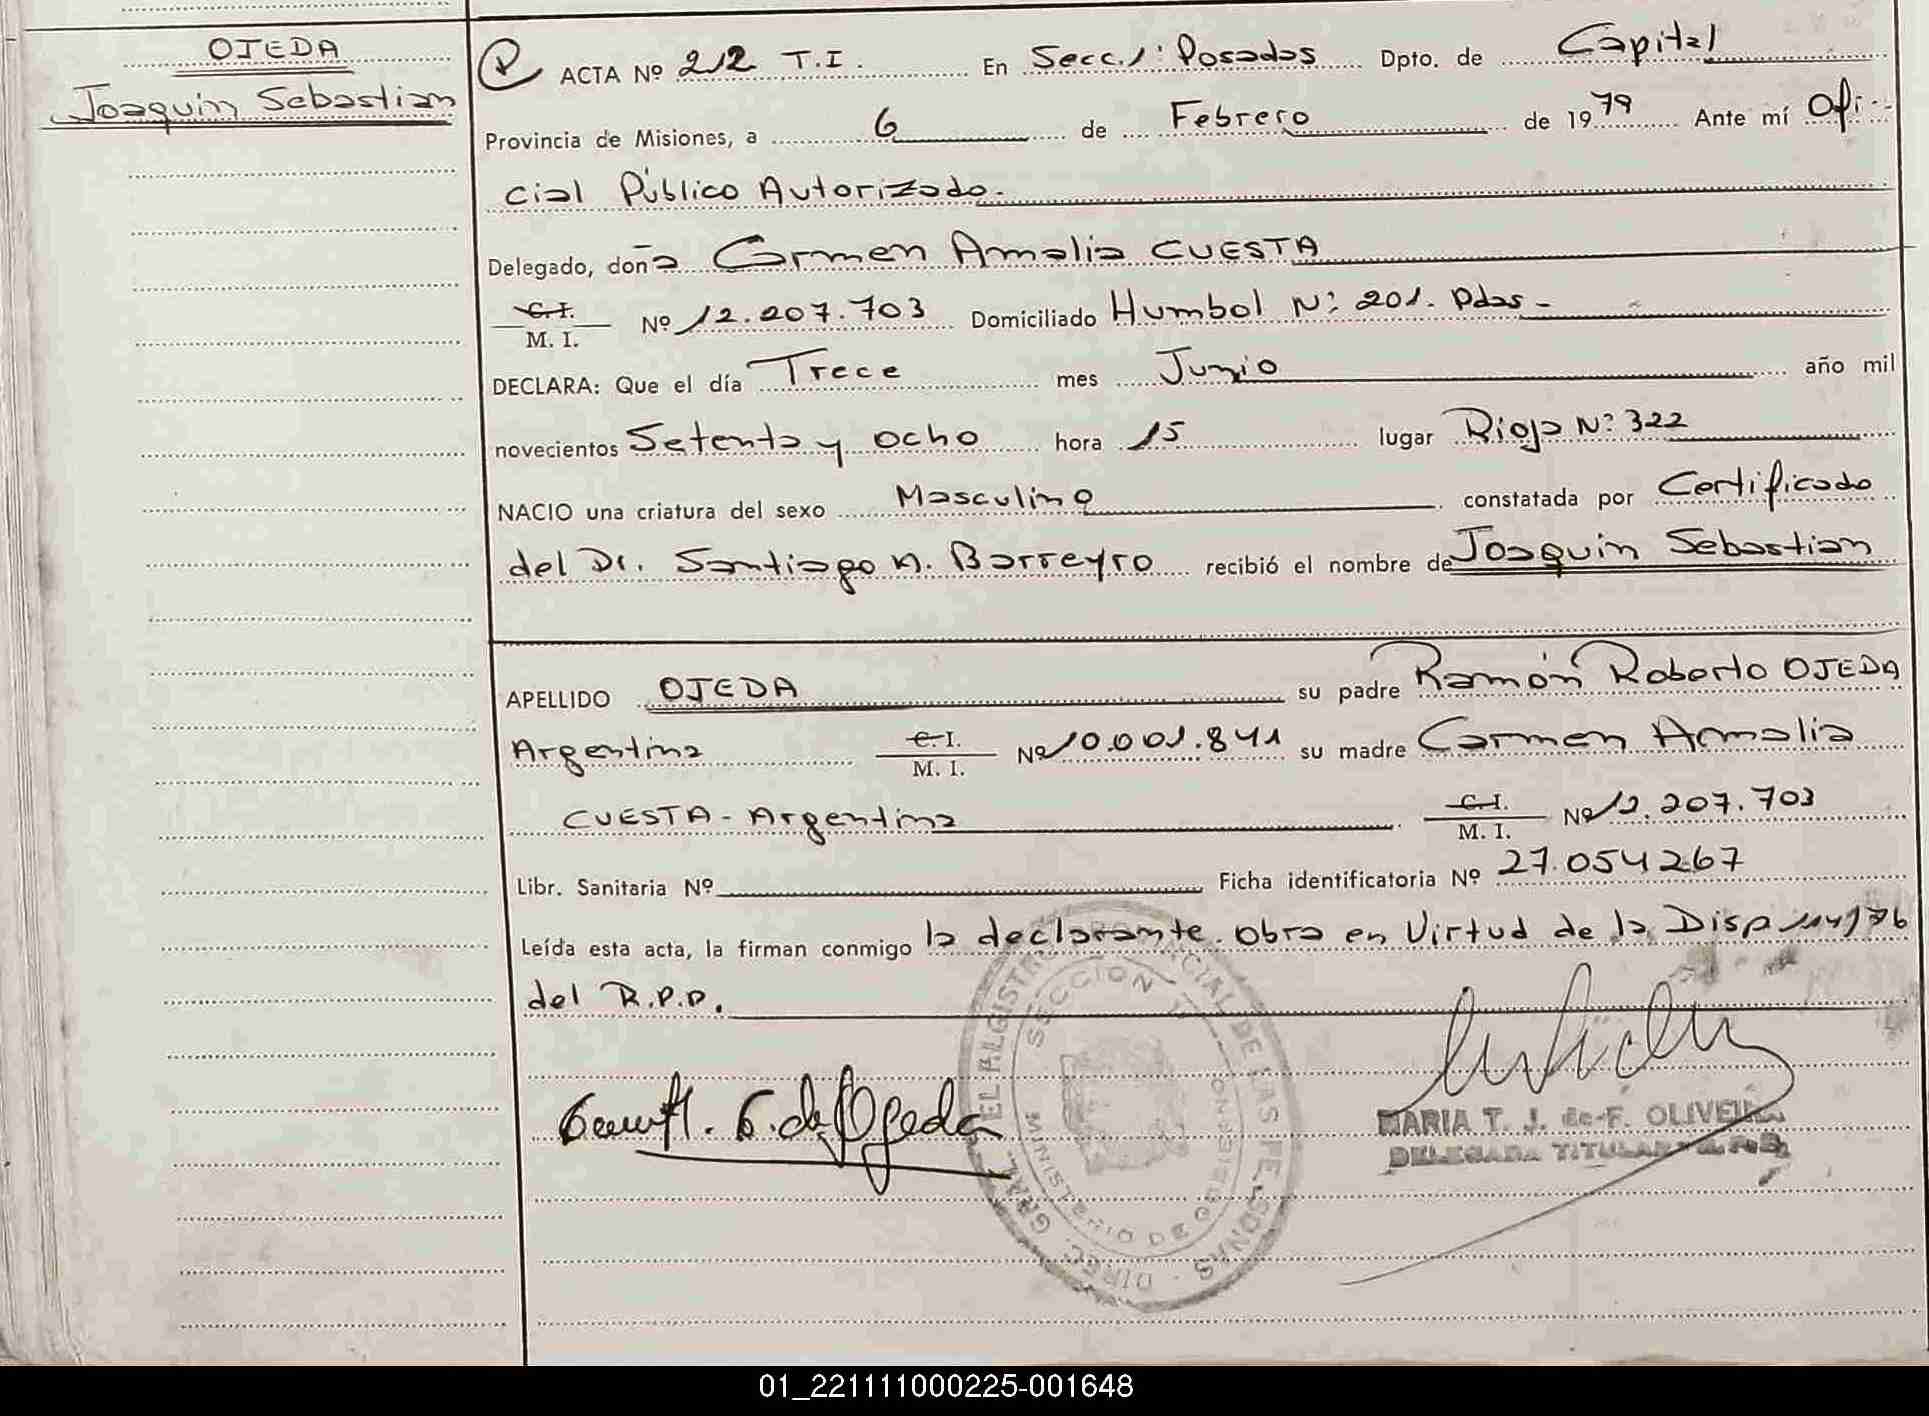 OJEDA
Joaquin Sebastian
ACTA Nº 212 T.I. En Secc. 1ª Posadas Dpto. de Capital
Provincia de Misiones, a 6 de Febrero de 1979 Ante mí Ofi-
cial Público Autorizado.
Delegado, doña Carmen Amalia CUESTA
C.I.
M. I. Nº 12.207.703 Domiciliado Humbol Nº 201. Pdas -
DECLARA: Que el día Trece mes Junio año mil
novecientos Setenta y ocho hora 15 lugar Rioja Nº 322
NACIO una criatura del sexo Masculino constatada por Certificado
del Dr. Santiago A. Barreyro recibió el nombre de Joaquin Sebastian
APELLIDO OJEDA su padre Ramón Roberto OJEDA
Argentina C.I.
M. I. Nº 10.001.841 su madre Carmen Amalia
CUESTA - Argentina C.I.
M. I. Nº 12.207.703
Libr. Sanitaria Nº Ficha identificatoria Nº 27.054.267
Leída esta acta, la firman conmigo la declarante. obra en Virtud de la Disp 114/76
del R.P.P.
DIREC. GRAL. DEL REGISTRO PROVINCIAL DE LAS PERSONAS
SECCION 1ª
MINISTERIO DE GOBIERNO
C. de Ojeda
MARIA T. J. de F. OLIVEIRA
DELEGADA TITULAR
01_221111000225-001648